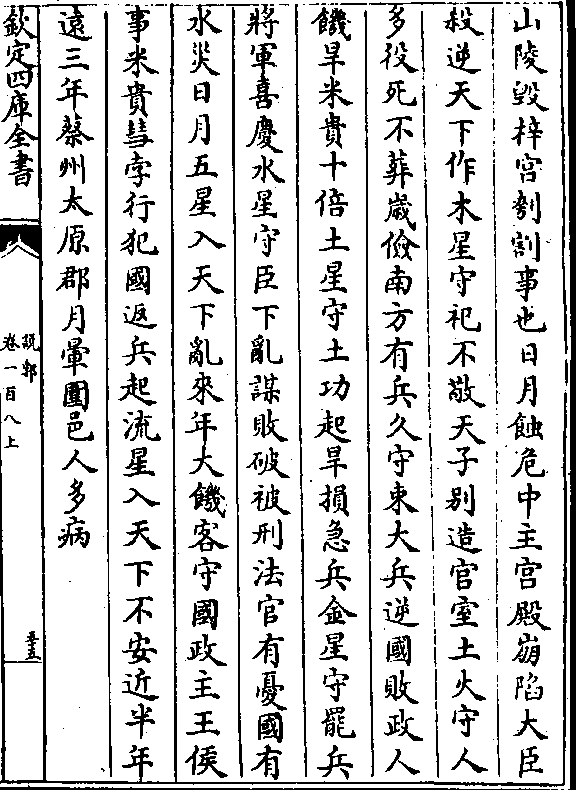 山陵毀梓宮剖割事也日月蝕危中主宮殿崩陷大臣
殺逆天下作木星守祀不敬天子别造官室土火守人
多役死不葬嵗儉南方有兵久守東大兵逆國敗政人
饑旱米貴十倍土星守土功起旱損急兵金星守罷兵
將軍喜慶水星守臣下亂謀敗破被刑法官有憂國有
水災日月五星入天下亂來年大饑客守國政主王侯
事米貴彗孛行犯國返兵起流星入天下不安近半年
遠三年蔡州太原郡月暈圍邑人多病
欽定四庫全書
說郛
卷一百八上